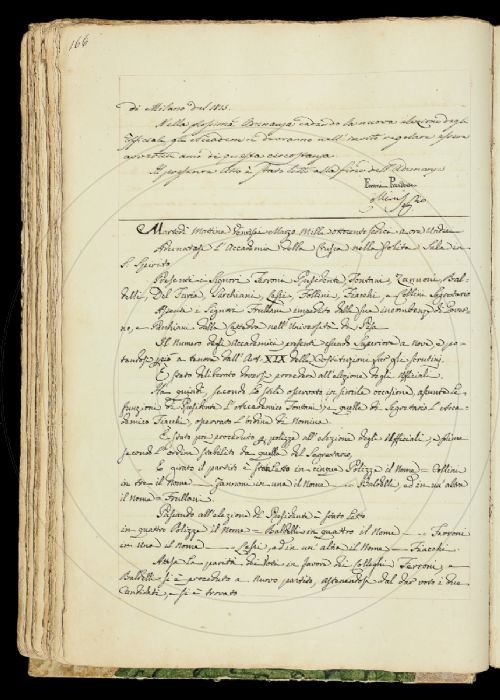 166
di Milano del 1815.
Nella prossima Adunanza cadendo la nuova elezione degli
Uffiziali gli Accademici dovranno nell'invito regolare essere
avvertiti anco di questa circostanza
Il presente Atto è stato letto alla fine dell'Adunanza
Martedì Mattina Ventisei Marzo Mille ottocento sedici a ore Undici
Adunatasi l'Accademia della Crusca nella solita Sala in
S. Spirito.
Presenti i Signori Ferroni Presidente, Fontani, Zannoni, Bal-
delli, Del Furia, Sarchiani, Lessi, Follini, Fiacchi, e Collini Segretario
Assenti i Signori Frullani impedito dalle sue incombenze di Gover-
no, e dalla Cattedra nell'Università di Pisa
Il Numero degli Accademici presenti essendo Superiore a nove, e po-
tendosi però a tenore dell'Art. XIX della Costituzione far gli scrutini.
È stato deliberato doversi procedere all'elezione degli Uffiziali.
Ha quindi, secondo lo stile osservato in simile occasione, assunto le
funzioni di Presidente l'Accademico Fontani, e quelle di Segretario l'Acca-
demico Fiacchi, osservato l'ordine di Nomina.
È stato poi proceduto per polizze all'elezione degli Uffiziali, e prima
secondo l'ordine stabilito da quella del Segretario,
E girato il partito è stato letto in cinque Polizze il Nome = Collini
in tre il nome Zannoni in una il Nome Baldelli, ed in un'altra
il Nome = Frullani.
Passando all'elezione di Presidente è stato letto
in quattro Polizze il Nome = Baldelli in quattro il Nome Ferroni
in Una il Nome Lessi, ed in un'altra il Nome Fiacchi.
Attesa la parità dei Voti in favore dei Colleghi Ferroni, e
Baldelli si è proceduto a nuovo partito, astenendosi dal dar voto i due
Candidati, e si è trovato